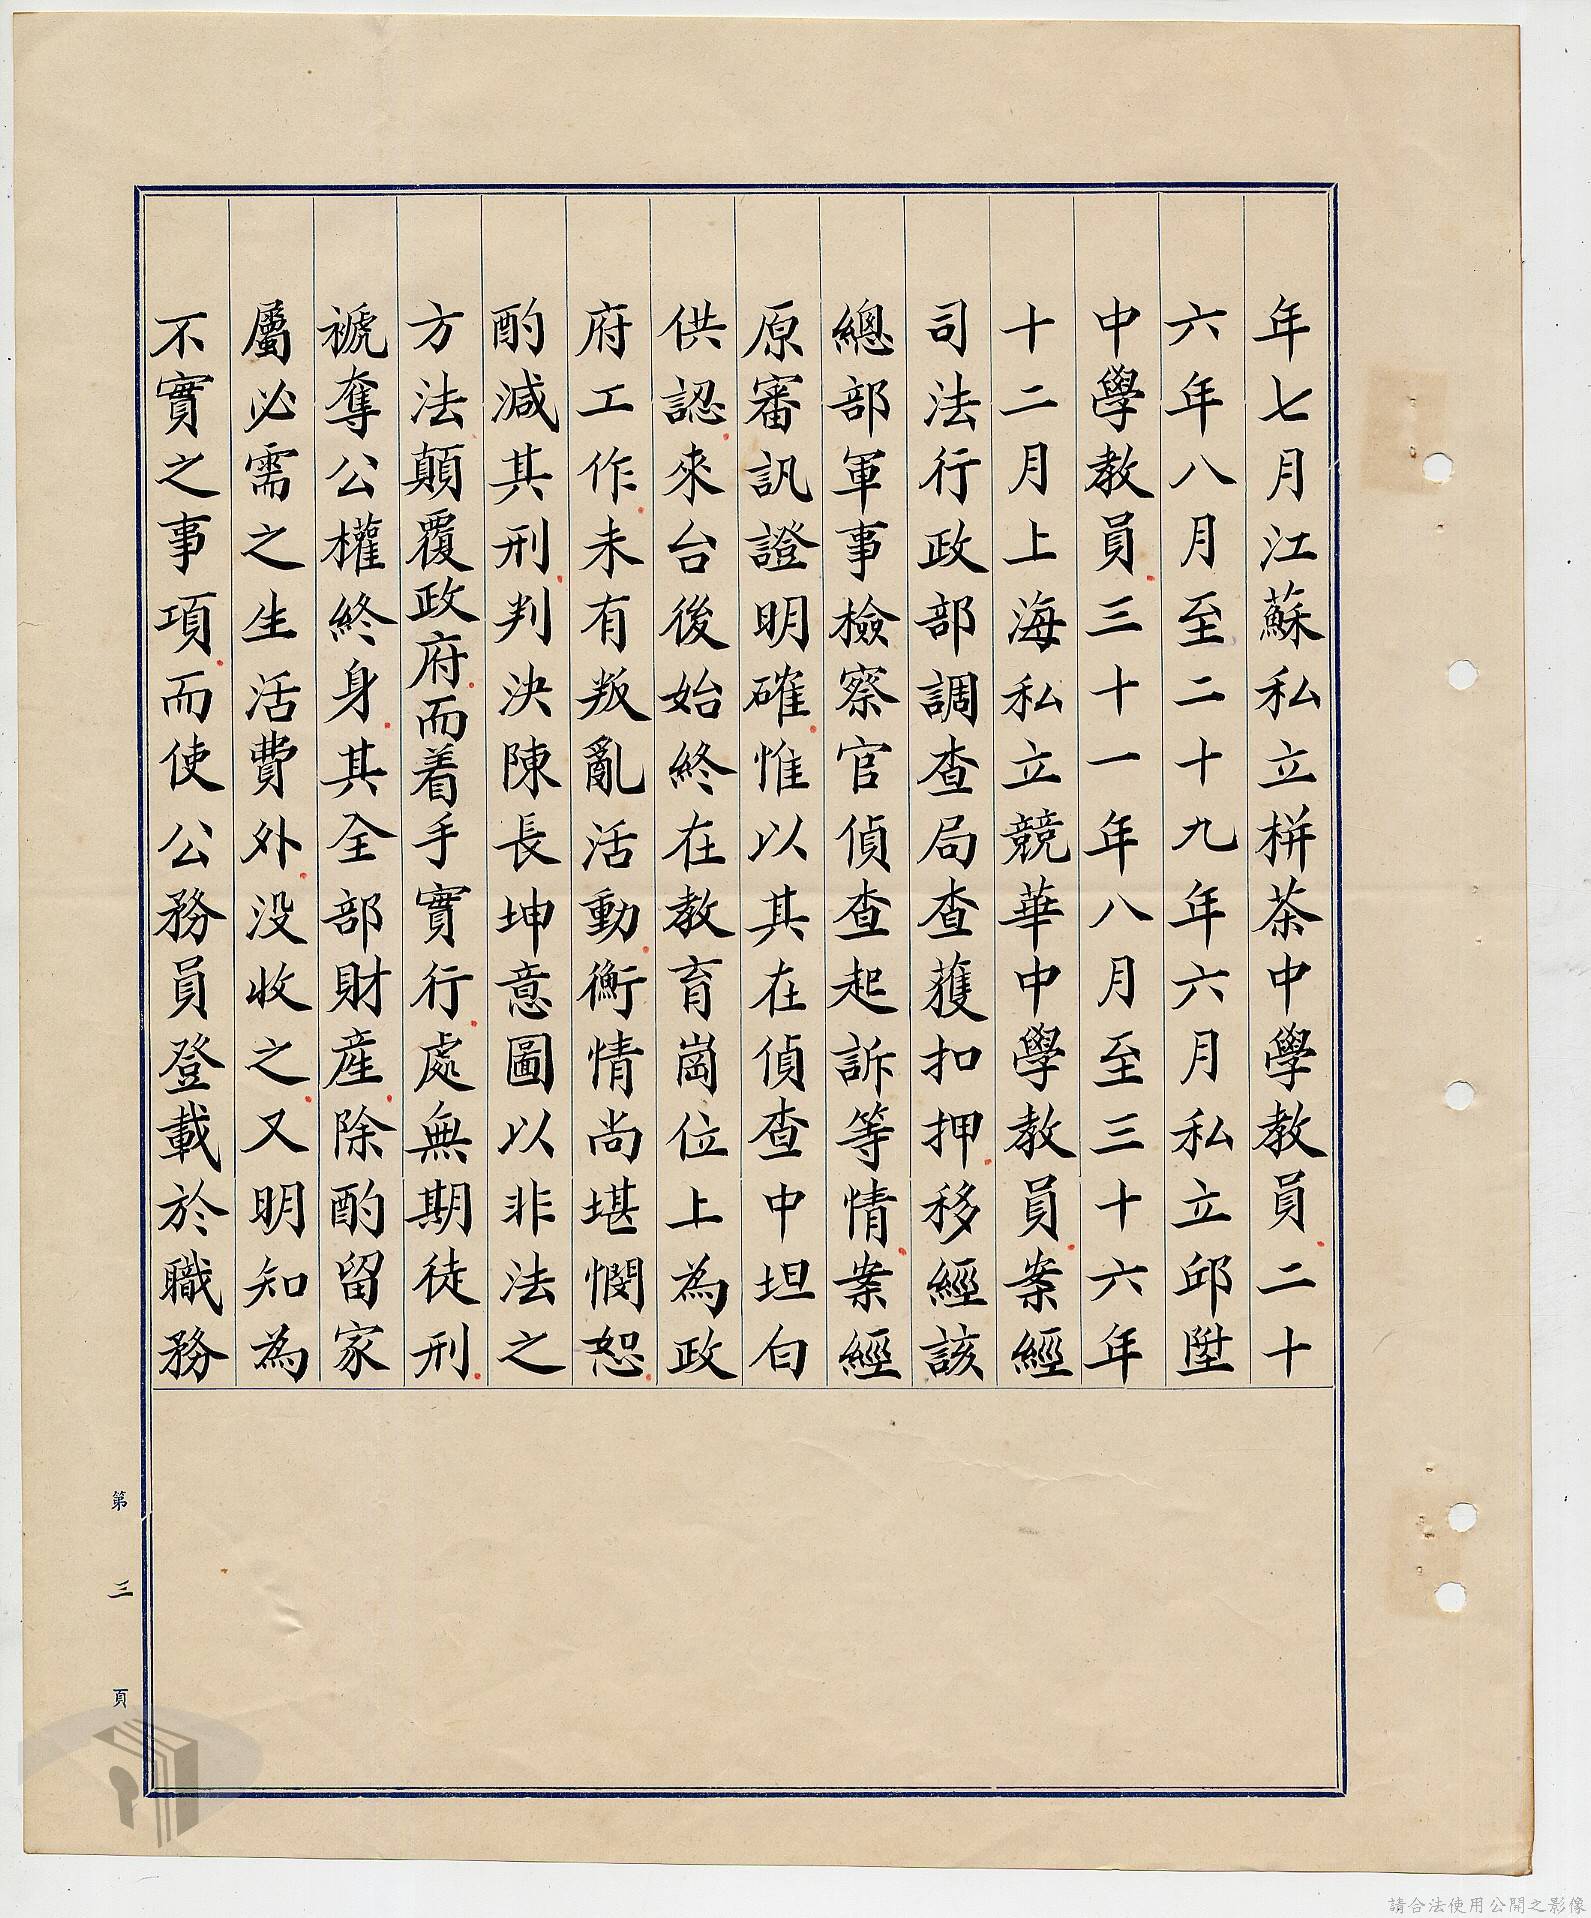 年七月江蘇私立栟茶中學教員二十
六年八月至二十九年六月私立邱陞
中學教員三十一年八月至三十六年
十二月上海私立競華中學教員案經
司法行政部調查局查獲扣押移經該
總部軍事檢察官偵查起訴等情案經
原審訊證明確惟以其在偵查中坦白
供認來台後始終在教育崗位上為政
府工作未有叛亂活動衡情尚堪憫恕
酌減其刑判決陳長坤意圖以非法之
方法顛覆政府而着手實行處無期徒刑
褫奪公權終身其全部財產除酌留家
屬必需之生活費外没收之又明知為
不實之事項而使公務員登載於職務
第三頁
請合法使用公開之影像